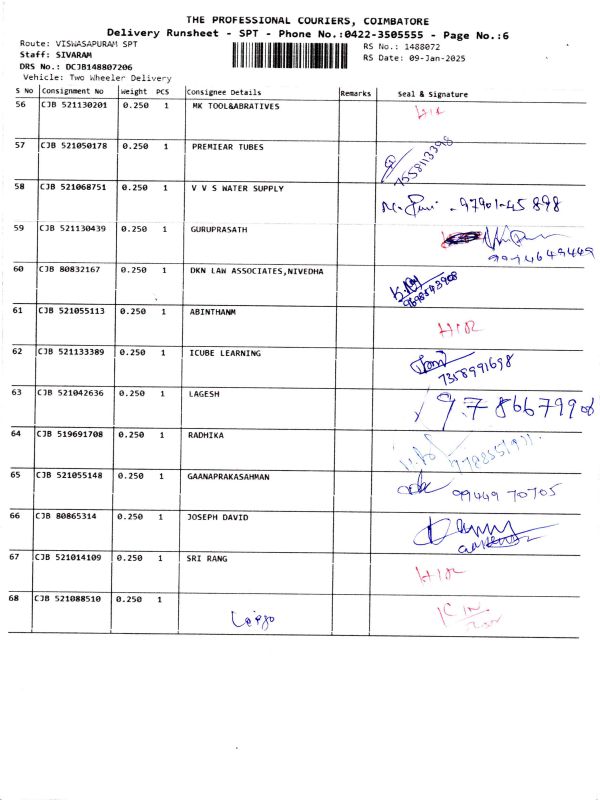 THE PROFESSIONAL COURIERS, COIMBATORE
Delivery Runsheet - SPT - Phone No.:0422-3505555 - Page No.:6
Route: VISWASAPURAM SPT
RS No.: 1488072
Staff: SIVARAM
RS Date: 09-Jan-2025
DRS No.: DCJB148807206
Vehicle: Two Wheeler Delivery
S No Consignment No Weight PCS Consignee Details Remarks Seal & Signature
56 CJB 521130201 0.250 1 MK TOOL&ABRATIVES
57 CJB 521050178 0.250 1 PREMIEAR TUBES
7558113398
58 CJB 521068751 0.250 1 V V S WATER SUPPLY
97901-45898
59 CJB 521130439 0.250 1 GURUPRASATH
60 CJB 80832167 0.250 1 DKN LAW ASSOCIATES,NIVEDHA
61 CJB 521055113 0.250 1 ABINTHANM
62 CJB 521133389 0.250 1 ICUBE LEARNING
7358991698
63 CJB 521042636 0.250 1 LAGESH
64 CJB 519691708 0.250 1 RADHIKA
65 CJB 521055148 0.250 1 GAANAPRAKASAHMAN
99449 70705
66 CJB 80865314 0.250 1 JOSEPH DAVID
67 CJB 521014109 0.250 1 SRI RANG
68 CJB 521088510 0.250 1